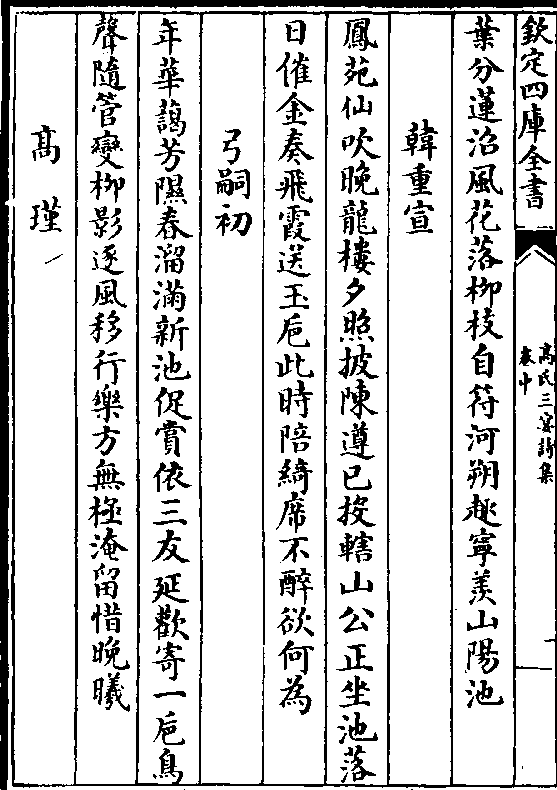 欽定四庫全書
高氏三宴詩集
卷中
葉分蓮沼風花落柳枝自符河朔趣寧羨山陽池
韓重宣
鳳苑仙吹晚龍樓夕照披陳遵已投轄山公正坐池落
日催金奏飛霞送玉巵此時陪綺席不醉欲何為
弓嗣初
年華藹芳隰春溜滿新池促賞依三友延歡寄一巵鳥
聲隨管變柳影逐風移行樂方無極淹留惜晚曦
髙瑾